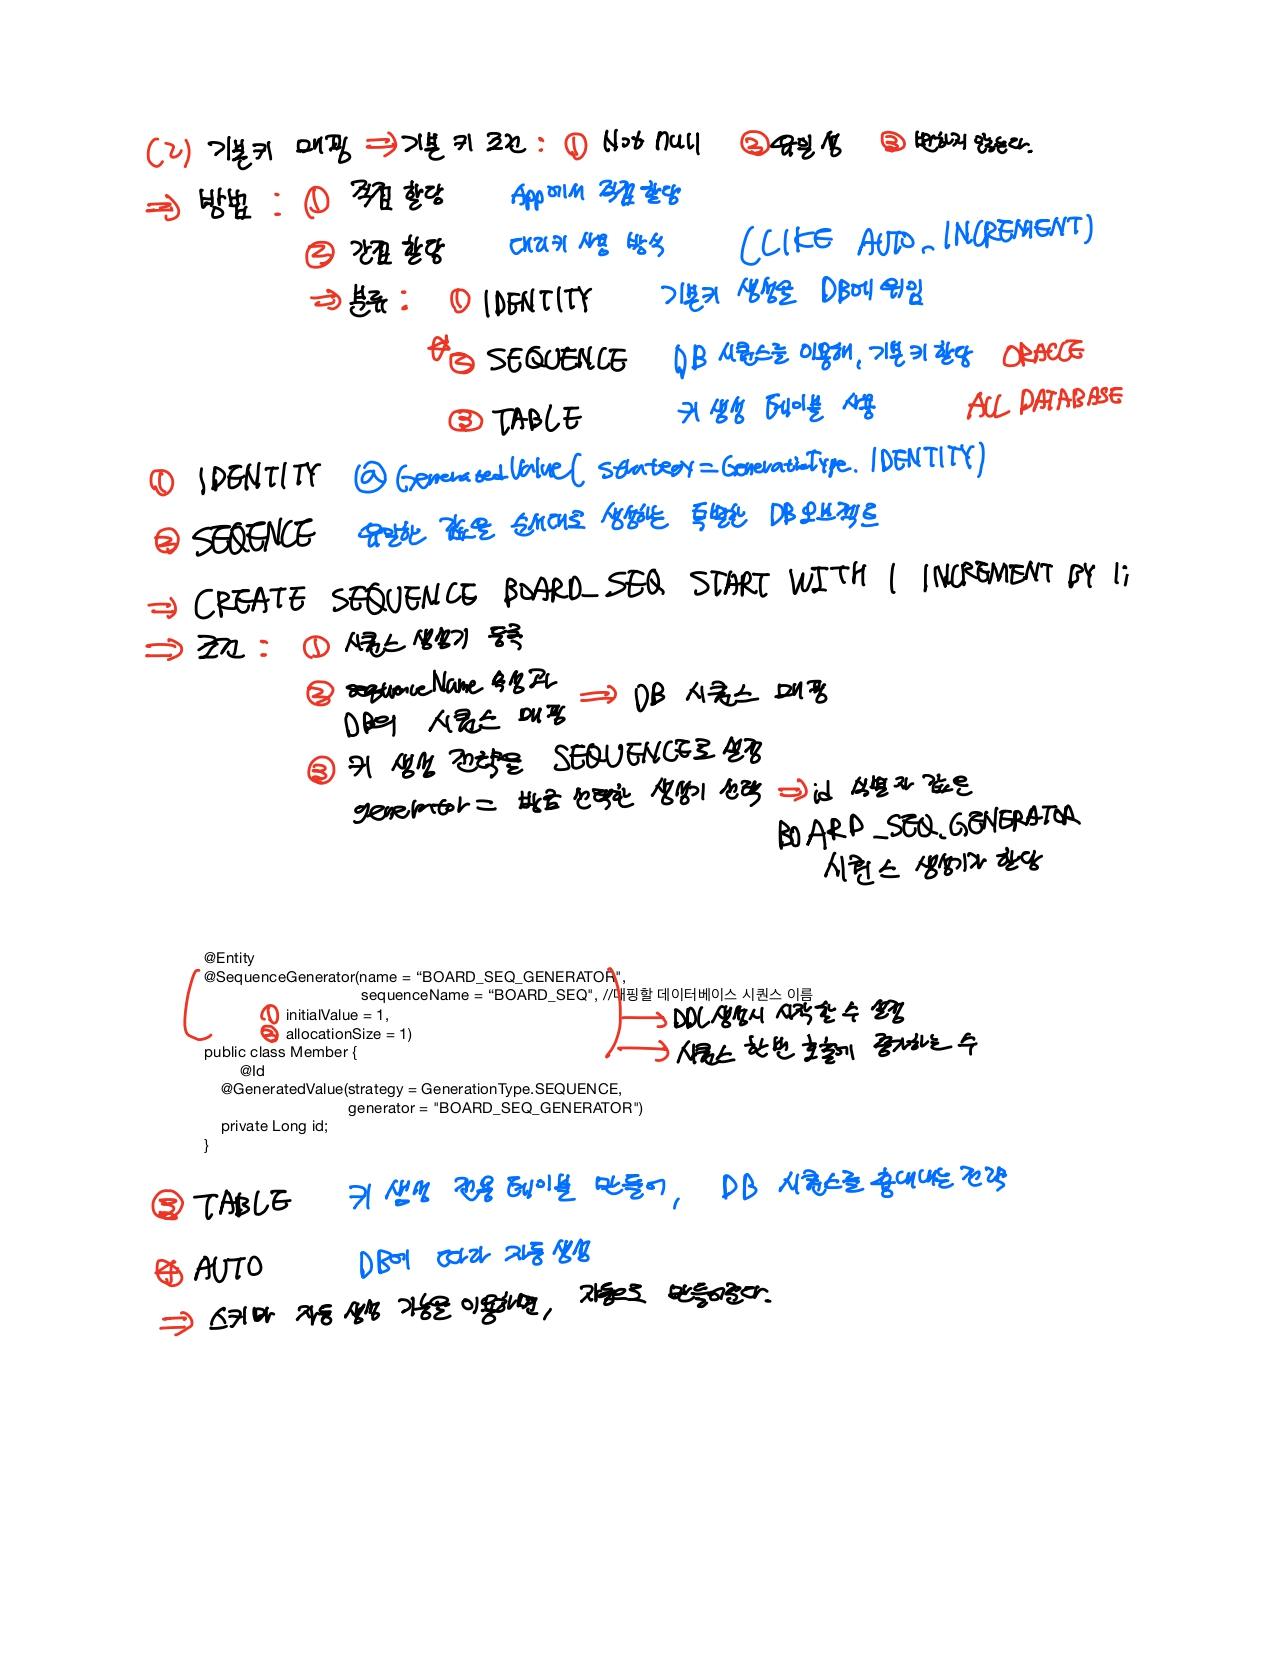 (2) 기본키 매핑 ⇒ 기본 키 조건 : ① Not null ② 유일성 ③ 변하지 않는다.
⇒ 방법 : ① 직접 할당 App에서 직접 할당
② 간접 할당 대리키 사용 방식 (LIKE AUTO_INCREMENT)
⇒ 분류 : ① IDENTITY 기본키 생성을 DB에 위임
② SEQUENCE DB 시퀀스를 이용해, 기본 키 할당 ORACLE
③ TABLE 키 생성 테이블 사용 ALL DATABASE
① IDENTITY @GeneratedValue( strategy = GenerationType. IDENTITY)
② SEQENCE 유일한 값을 순서대로 생성하는 특별한 DB 오브젝트
⇒ CREATE SEQUENCE BOARD_SEQ START WITH 1 INCREMENT BY 1;
⇒ 조건 : ① 시퀀스 생성기 등록
② sequenceName 속성과 ⇒ DB 시퀀스 매핑
DB의 시퀀스 매핑
③ 키 생성 전략을 SEQUENCE로 설정
generator = 방금 선택한 생성기 선택 ⇒ id 식별자 값은
BOARD_SEQ_GENERATOR
시퀀스 생성기가 할당
@Entity
@SequenceGenerator(name = “BOARD_SEQ_GENERATOR",
sequenceName = “BOARD_SEQ", //매핑할 데이터베이스 시퀀스 이름
① initialValue = 1, → DDL 생성시 시작할 수 설정
② allocationSize = 1) → 시퀀스 한번 호출에 증가하는 수
public class Member {
@Id
@GeneratedValue(strategy = GenerationType.SEQUENCE,
generator = "BOARD_SEQ_GENERATOR")
private Long id;
}
③ TABLE 키 생성 전용 테이블 만들어, DB 시퀀스를 흉내내는 전략
④ AUTO DB에 따라 자동생성
⇒ 스키마 자동 생성 기능을 이용하면, 자동으로 만들어준다.